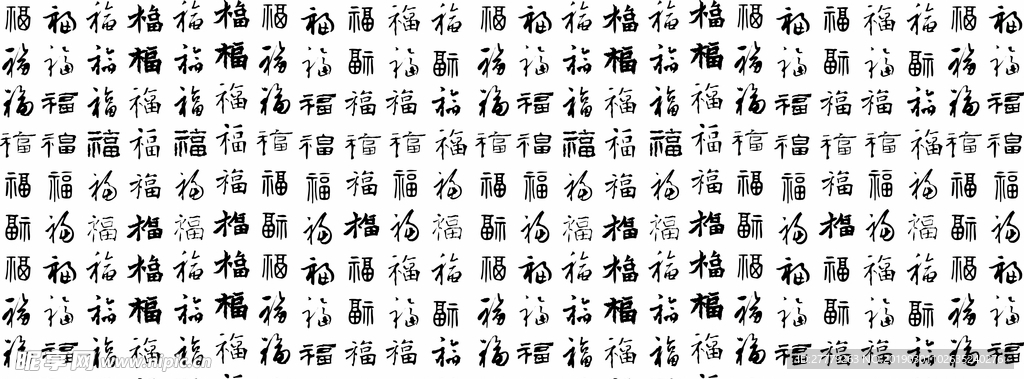 福福福福福福福福福福福福福福福福福福福福福福福福
福福福福福福福福福福福福福福福福福福福福福福福福
福福福福福福福福福福福福福福福福福福福福福福福福
福福福福福福福福福福福福福福福福福福福福福福福福
福福福福福福福福福福福福福福福福福福福福福福福福
福福福福福福福福福福福福福福福福福福福福福福福福
福福福福福福福福福福福福福福福福福福福福福福福福
福福福福福福福福福福福福福福福福福福福福福福福福
福福福福福福福福福福福福福福福福福福福福福福福福
昵享网 www.nipic.cn